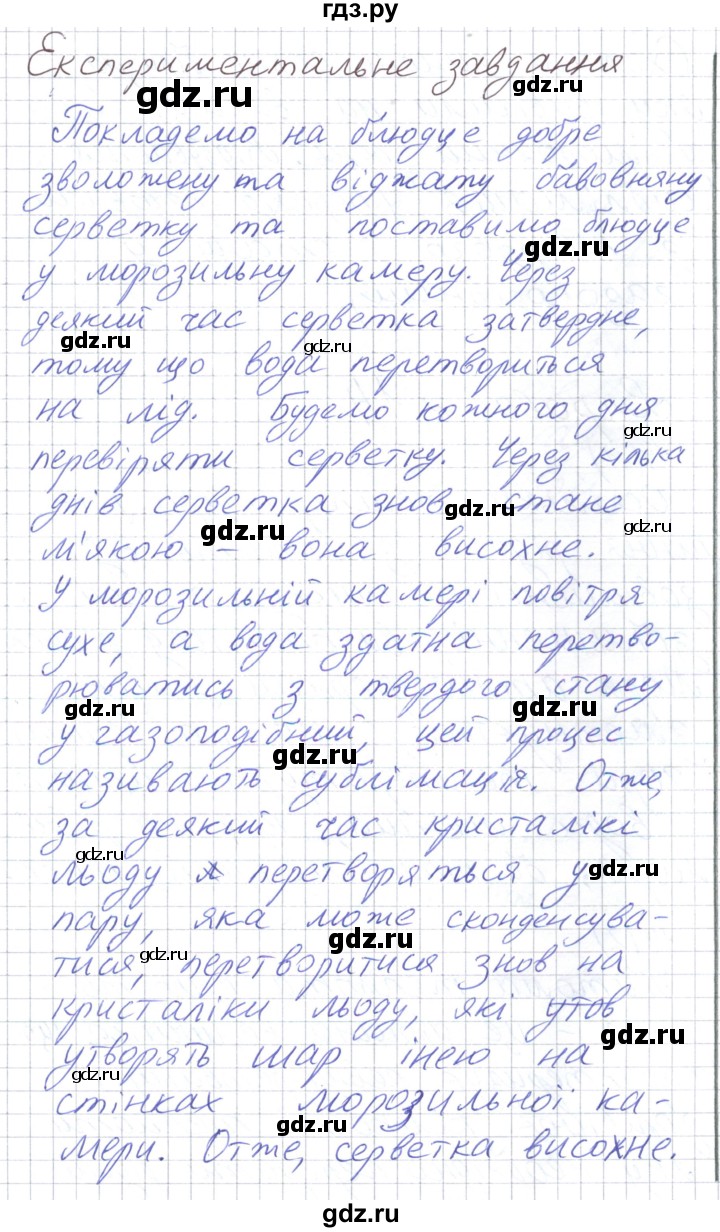 гдз.ру
Експериментальне завдання
gdz.ru
gdz.ru
Покладемо на блюдце добре
зволожену та віджату бавовняну
серветку та поставимо блюдце
gdz.ru
у морозильну камеру. Через
деякий час серветка затвердне,
gdz.ru
gdz.ru
тому що вода перетвориться
на лід. Будемо кожного дня
gdz.ru
перевіряти серветку. Через кілька
днів серветка знов стане
gdz.ru
gdz.ru
gdz.ru
м'якою – вона висохне.
У морозильній камері повітря
сухе, а вода здатна перетво-
рюватись з твердого стану
gdz.ru
gdz.ru
у газоподібний, цей процес
gdz.ru
називають сублімація. Отже,
за деякий час кристалікі
gdz.ru
льоду перетворяться у
gdz.ru
пару, яка може сконденсува-
gdz.ru
gdz.ru
тися, перетворитися знов на
кристаліки льоду, які утов
gdz.ru
утворять шар інею на
gdz.ru
стінках морозильної ка-
gdz.ru
мери. Отже, серветка висохне.
gdz.ru